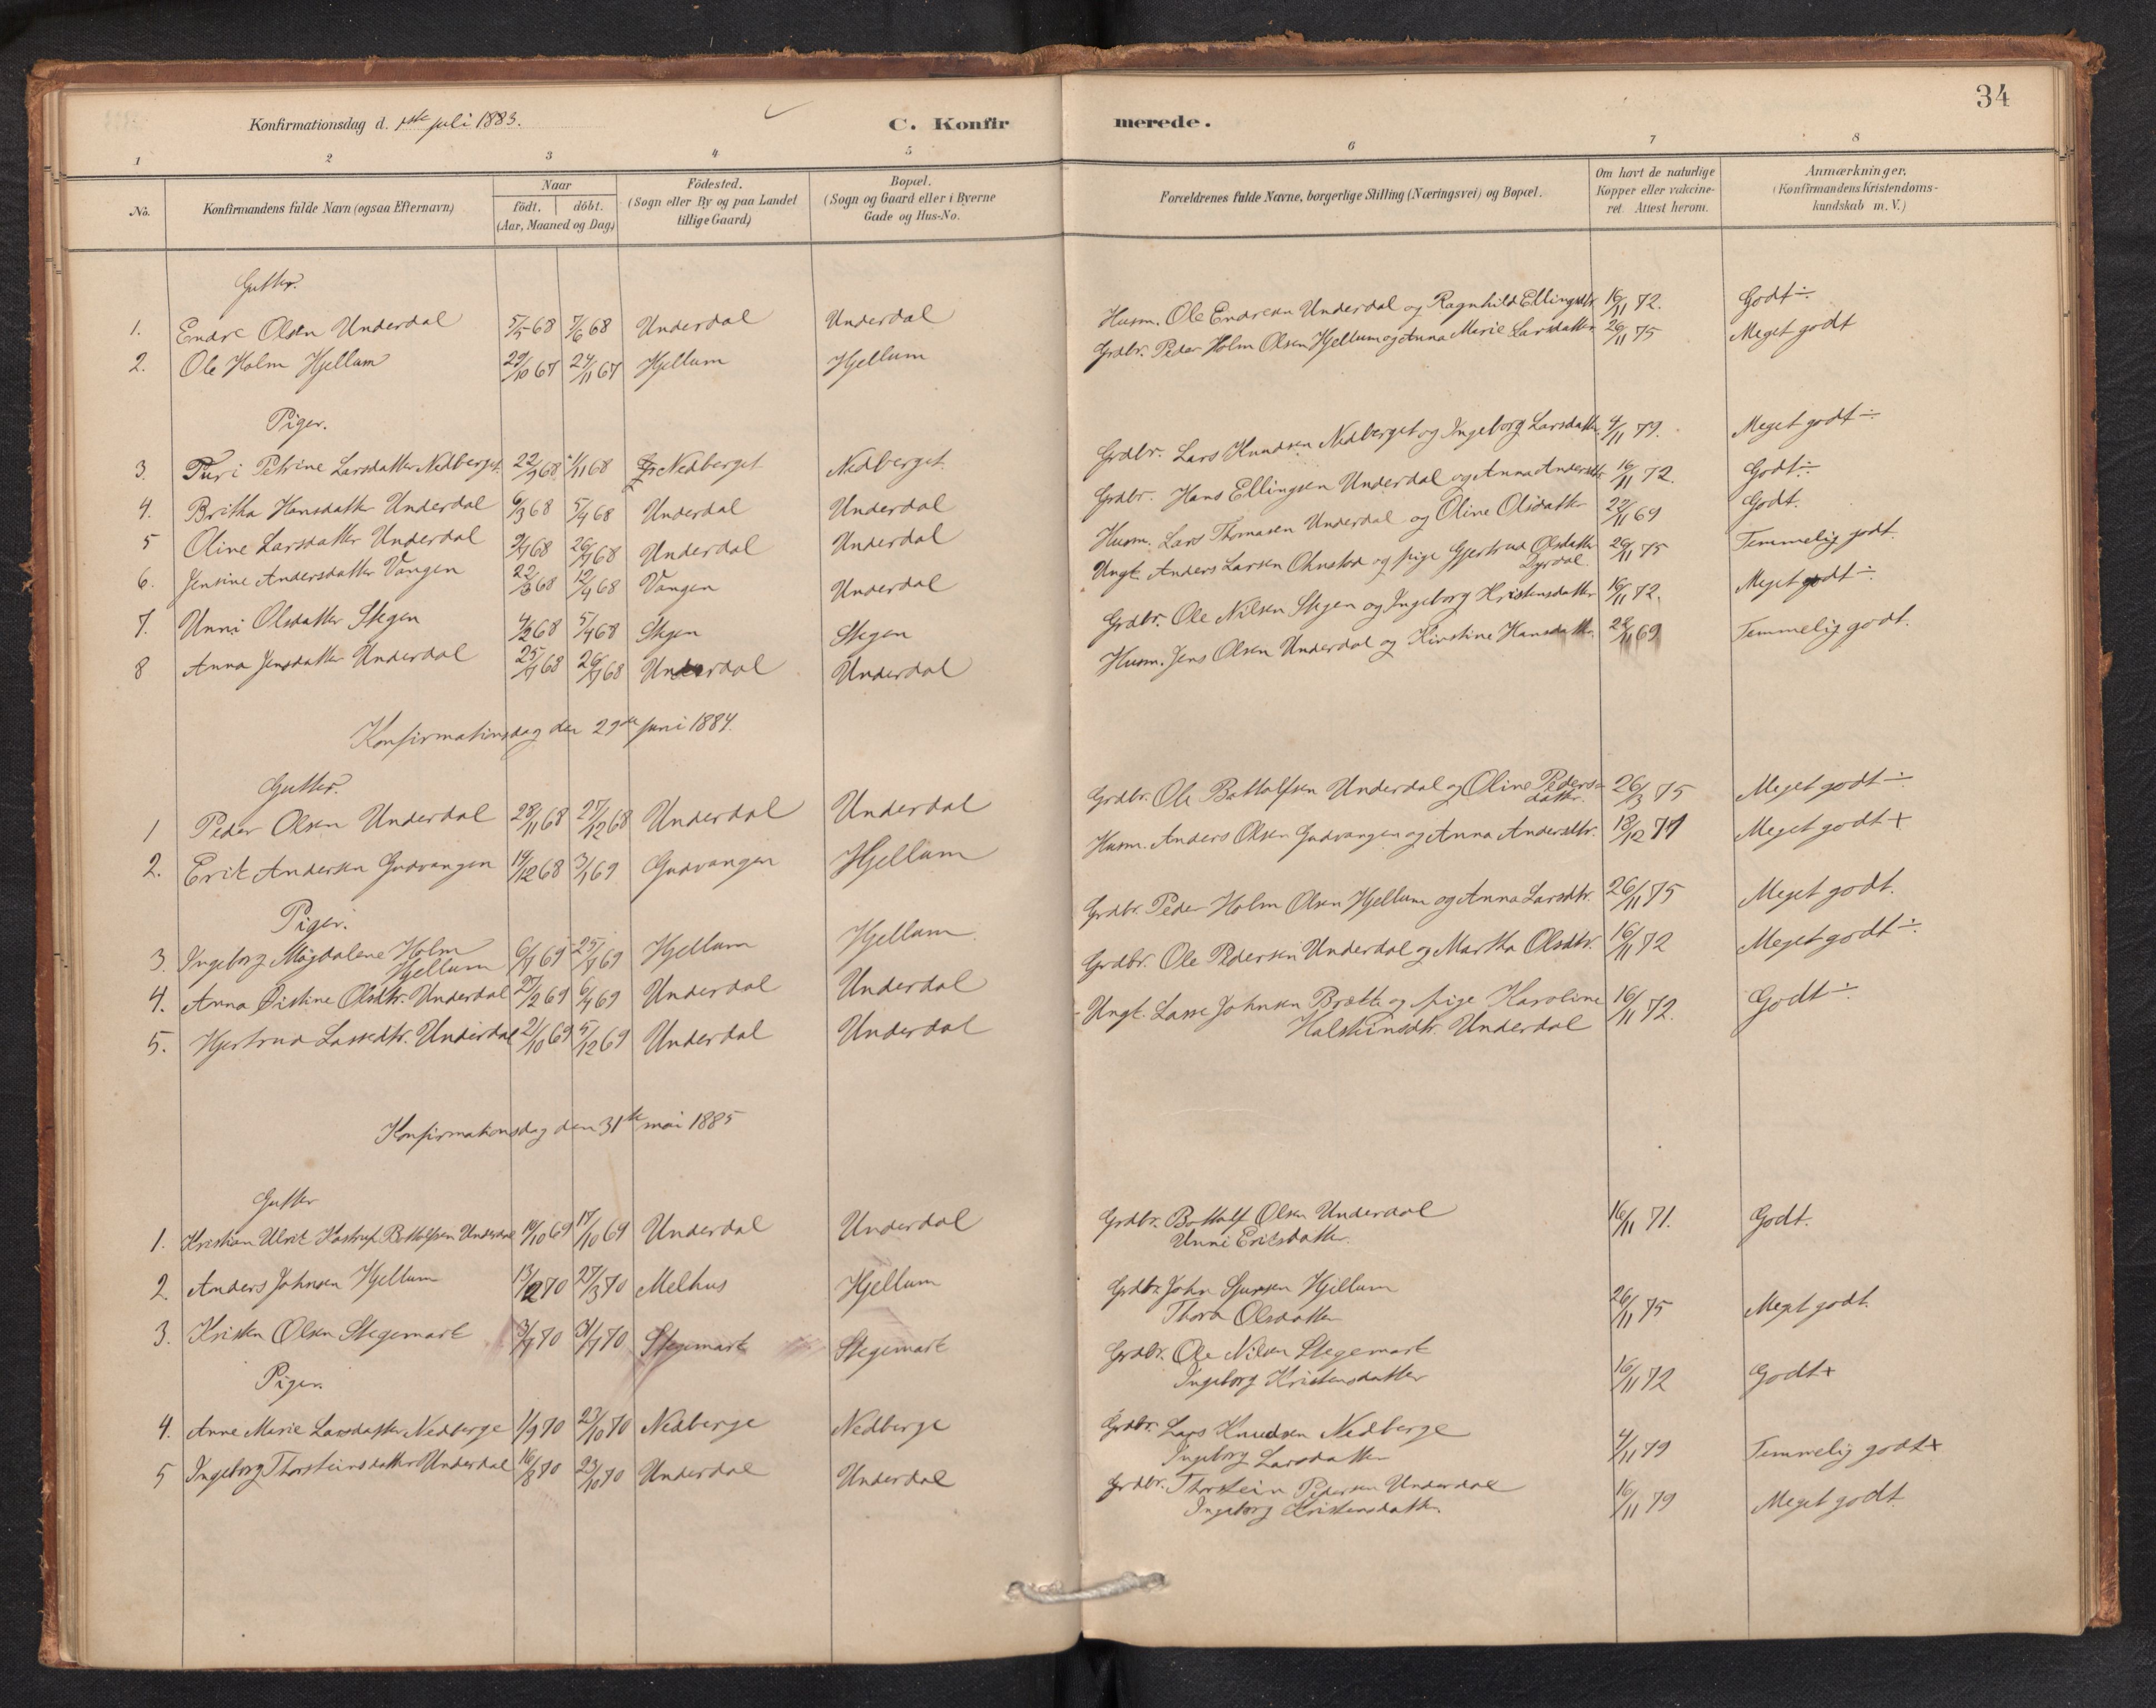 34
Konfirmationsdag d. 1ste juli 1883.
C. Konfirmerede.
1 2 3 4 5 6 7 8
No.
Konfirmandens fulde Navn (ogsaa Efternavn)
Naar
födt, döbt.
(Aar, Maaned og Dag)
Födested.
(Sogn eller By og paa Landet tillige Gaard)
Bopæl.
(Sogn og Gaard eller i Byerne Gade og Hus-No.
Forældrenes fulde Navne, borgerlige Stilling (Næringsvei) og Bopæl.
Om havt de naturlige Kopper eller vakcineret. Attest herom.
Anmærkninger.
(Konfirmandens Kristendomskundskab m. V.)
Gutter.
1. Endre Olsen Underdal 5/5 68 7/6 68 Underdal Underdal Husm. Ole Endresen Underdal og Ragnhild Ellingsdtr. 16/11 72. Godt ÷
2. Ole Holm Hjellum 29/10 67 24/11 67 Hjellum Hjellum Grdbr. Peder Holm Olsen Hjellum og Anna Marie Larsdatter 26/11 75 Meget godt
Piger.
3. Turi Petrine Larsdatter Nedberget 22/9 68 1/11 68 Nedberget Nedberget. Grdbr. Lars Knudsen Nedberget og Ingeborg Larsdatter. 4/11 79. Meget godt ÷
4. Britha Hansdatter Underdal 6/3 68 5/4 68 Underdal Underdal Grdbr. Hans Ellingsen Underdal og Anna Andersdtr. 16/11 72. Godt ÷
5 Oline Larsdatter Underdal 9/7 68 26/7 68 Underdal Underdal Husm. Lars Thomasen Underdal og Oline Olsdatter 22/11 69 Godt.
6. Jensine Andersdatter Vangen 22/3 68 12/4 68 Vangen Underdal Ungk. Anders Larsen Ohnstad og pige Gjertrud Olsdatter Dyrdal. 26/11 75 Temmelig godt.
7. Unni Olsdatter Stegen 4/2 68 5/4 68 Stegen Stegen Grdbr. Ole Nilsen Stegen og Ingeborg Kristensdatter 16/11 72. Meget godt ÷
8 Anna Jensdatter Underdal 25/7 68 26/7 68 Underdal Underdal Husm. Jens Olsen Underdal og Kirstine Hansdatter 22/11 69 Temmelig godt.
Konfirmationsdag den 29de juni 1884.
Gutter.
1 Peder Olsen Underdal 28/11 68 27/12 68 Underdal Underdal Grdbr. Ole Bottolfsen Underdal og Oline Pedersdatter. 26/3 75 Meget godt ÷
2. Erik Andersen Gudvangen 14/12 68 3/1 69 Gudvangen Hjellum Husm. Anders Olsen Gudvangen og Anna Andersdtr. 18/12 77 Meget godt +
Piger.
3. Ingeborg Magdalene Holm Hjellum 6/7 69 25/7 69 Hjellum Hjellum Grdbr. Peder Holm Olsen Hjellum og Anna Larsdtr. 26/11 75 Meget godt.
4. Anna Kistine Olsdtr. Underdal 27/2 69 6/4 69 Underdal Underdal Grdbr. Ole Pedersen Underdal og Martha Olsdtr. 16/11 72 Meget godt ÷
5. Gjertrud Lassedtr. Underdal 2/10 69 5/12 69 Underdal Underdal Ungk. Lasse Johnsen Brætte og pige Karoline Halsteinsdtr. Underdal 16/11 72. Godt ÷
Konfirmationsdag den 31te mai 1885
Gutter
1. Kristian Ulrik Hastrup Bottolfsen Underdal 10/10 69 17/10 69 Underdal Underdal Grdbr. Bottolf Olsen Underdal
Unni Eriksdatter. 16/11 71. Godt.
2. Anders Johnsen Hjellum 13/2 70 27/3 70 Melhus Hjellum Grdbr. John Sjursen Hjellum
Thora Olsdatter 26/11 75 Meget godt.
3. Kristen Olsen Stegemark 3/7 70 31/7 70 Stegemark Stegemark Grdbr. Ole Nilsen Stegemark
Ingeborg Kristensdatter 16/11 72 Godt +
Piger.
4. Anne Marie Larsdatter Nedberge 1/9 70 23/10 70 Nedberge Nedberge Grdbr. Lars Knudsen Nedberge
Ingeborg Larsdatter 4/11 79 Temmelig godt +
5 Ingeborg Thorsteinsdatter Underdal 16/8 70 23/10 70 Underdal Underdal Grdbr. Thorstein Pedersen Underdal
Ingeborg Kristensdatter. 16/11 79 Meget godt